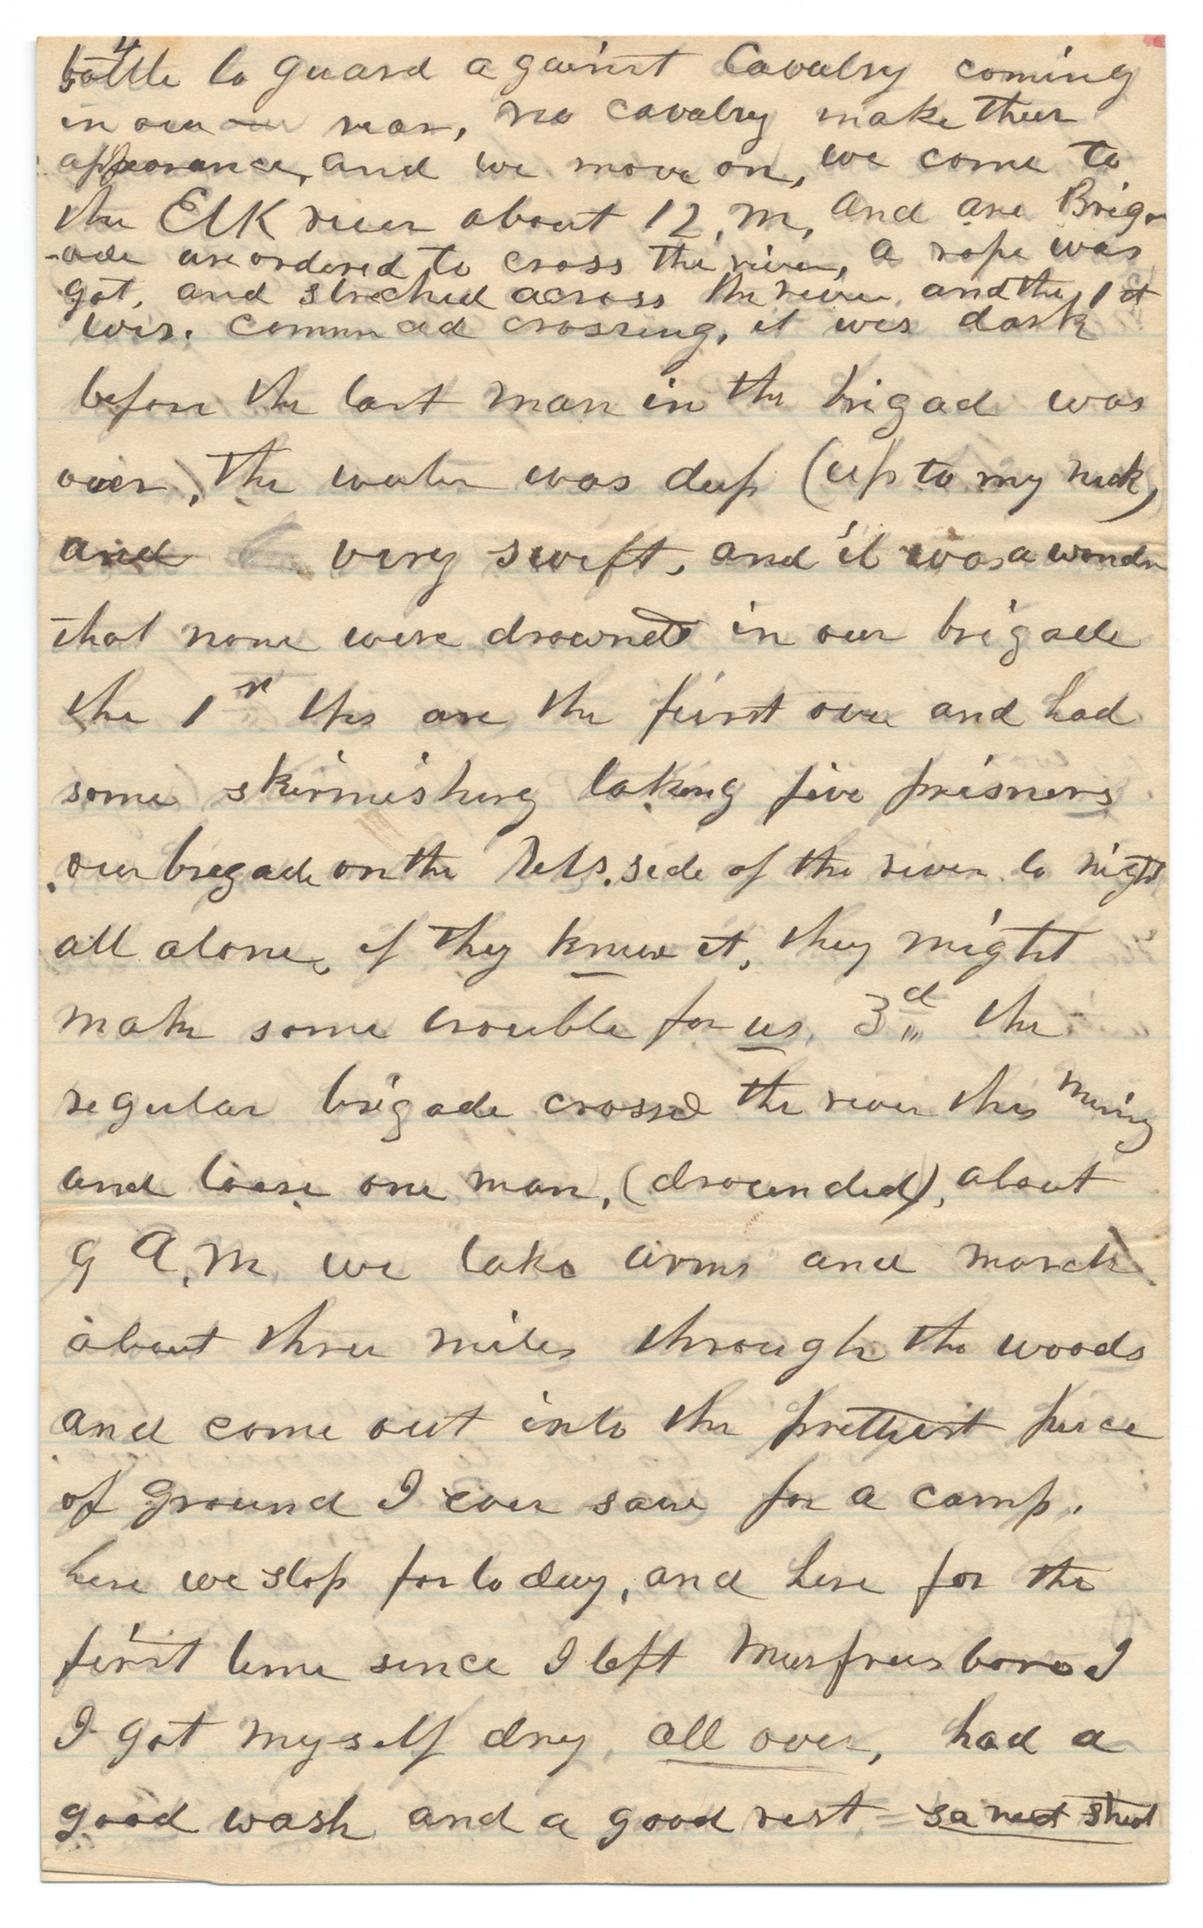 4
battle to guard against Cavalry coming
in our our rear, no cavalry make their
appearance, and we move on, we come to
the Elk river about 12, M, and are Brig-
-ade are ordered to cross the river, a rope was
got, and streched across the river, and the 1st
Wis. commnced crossing, it was dark
before the last man in the brigad was
over, The water was deep (up to my neck)
and very swift, and it was a wonder
that none were drownded in our brigade
the 1st Wis are the first over and had
some skirmishing taking five prisners
our brigade on the Rebs. side of the river to night
all alone, if they knew it, they might
make some trouble for us, 3d the
regular brigade crossed the river this mring
and loose one man, (drounded), about
9 A.M. we take arms and march
about three miles through the woods
and come out into the prettyest piece
of ground I ever saw for a camp,
here we stop for to day, and here for the
first time since I left Murfreesboro I
I got myself dry, all over, had a
good wash and a good rest = se next sheet